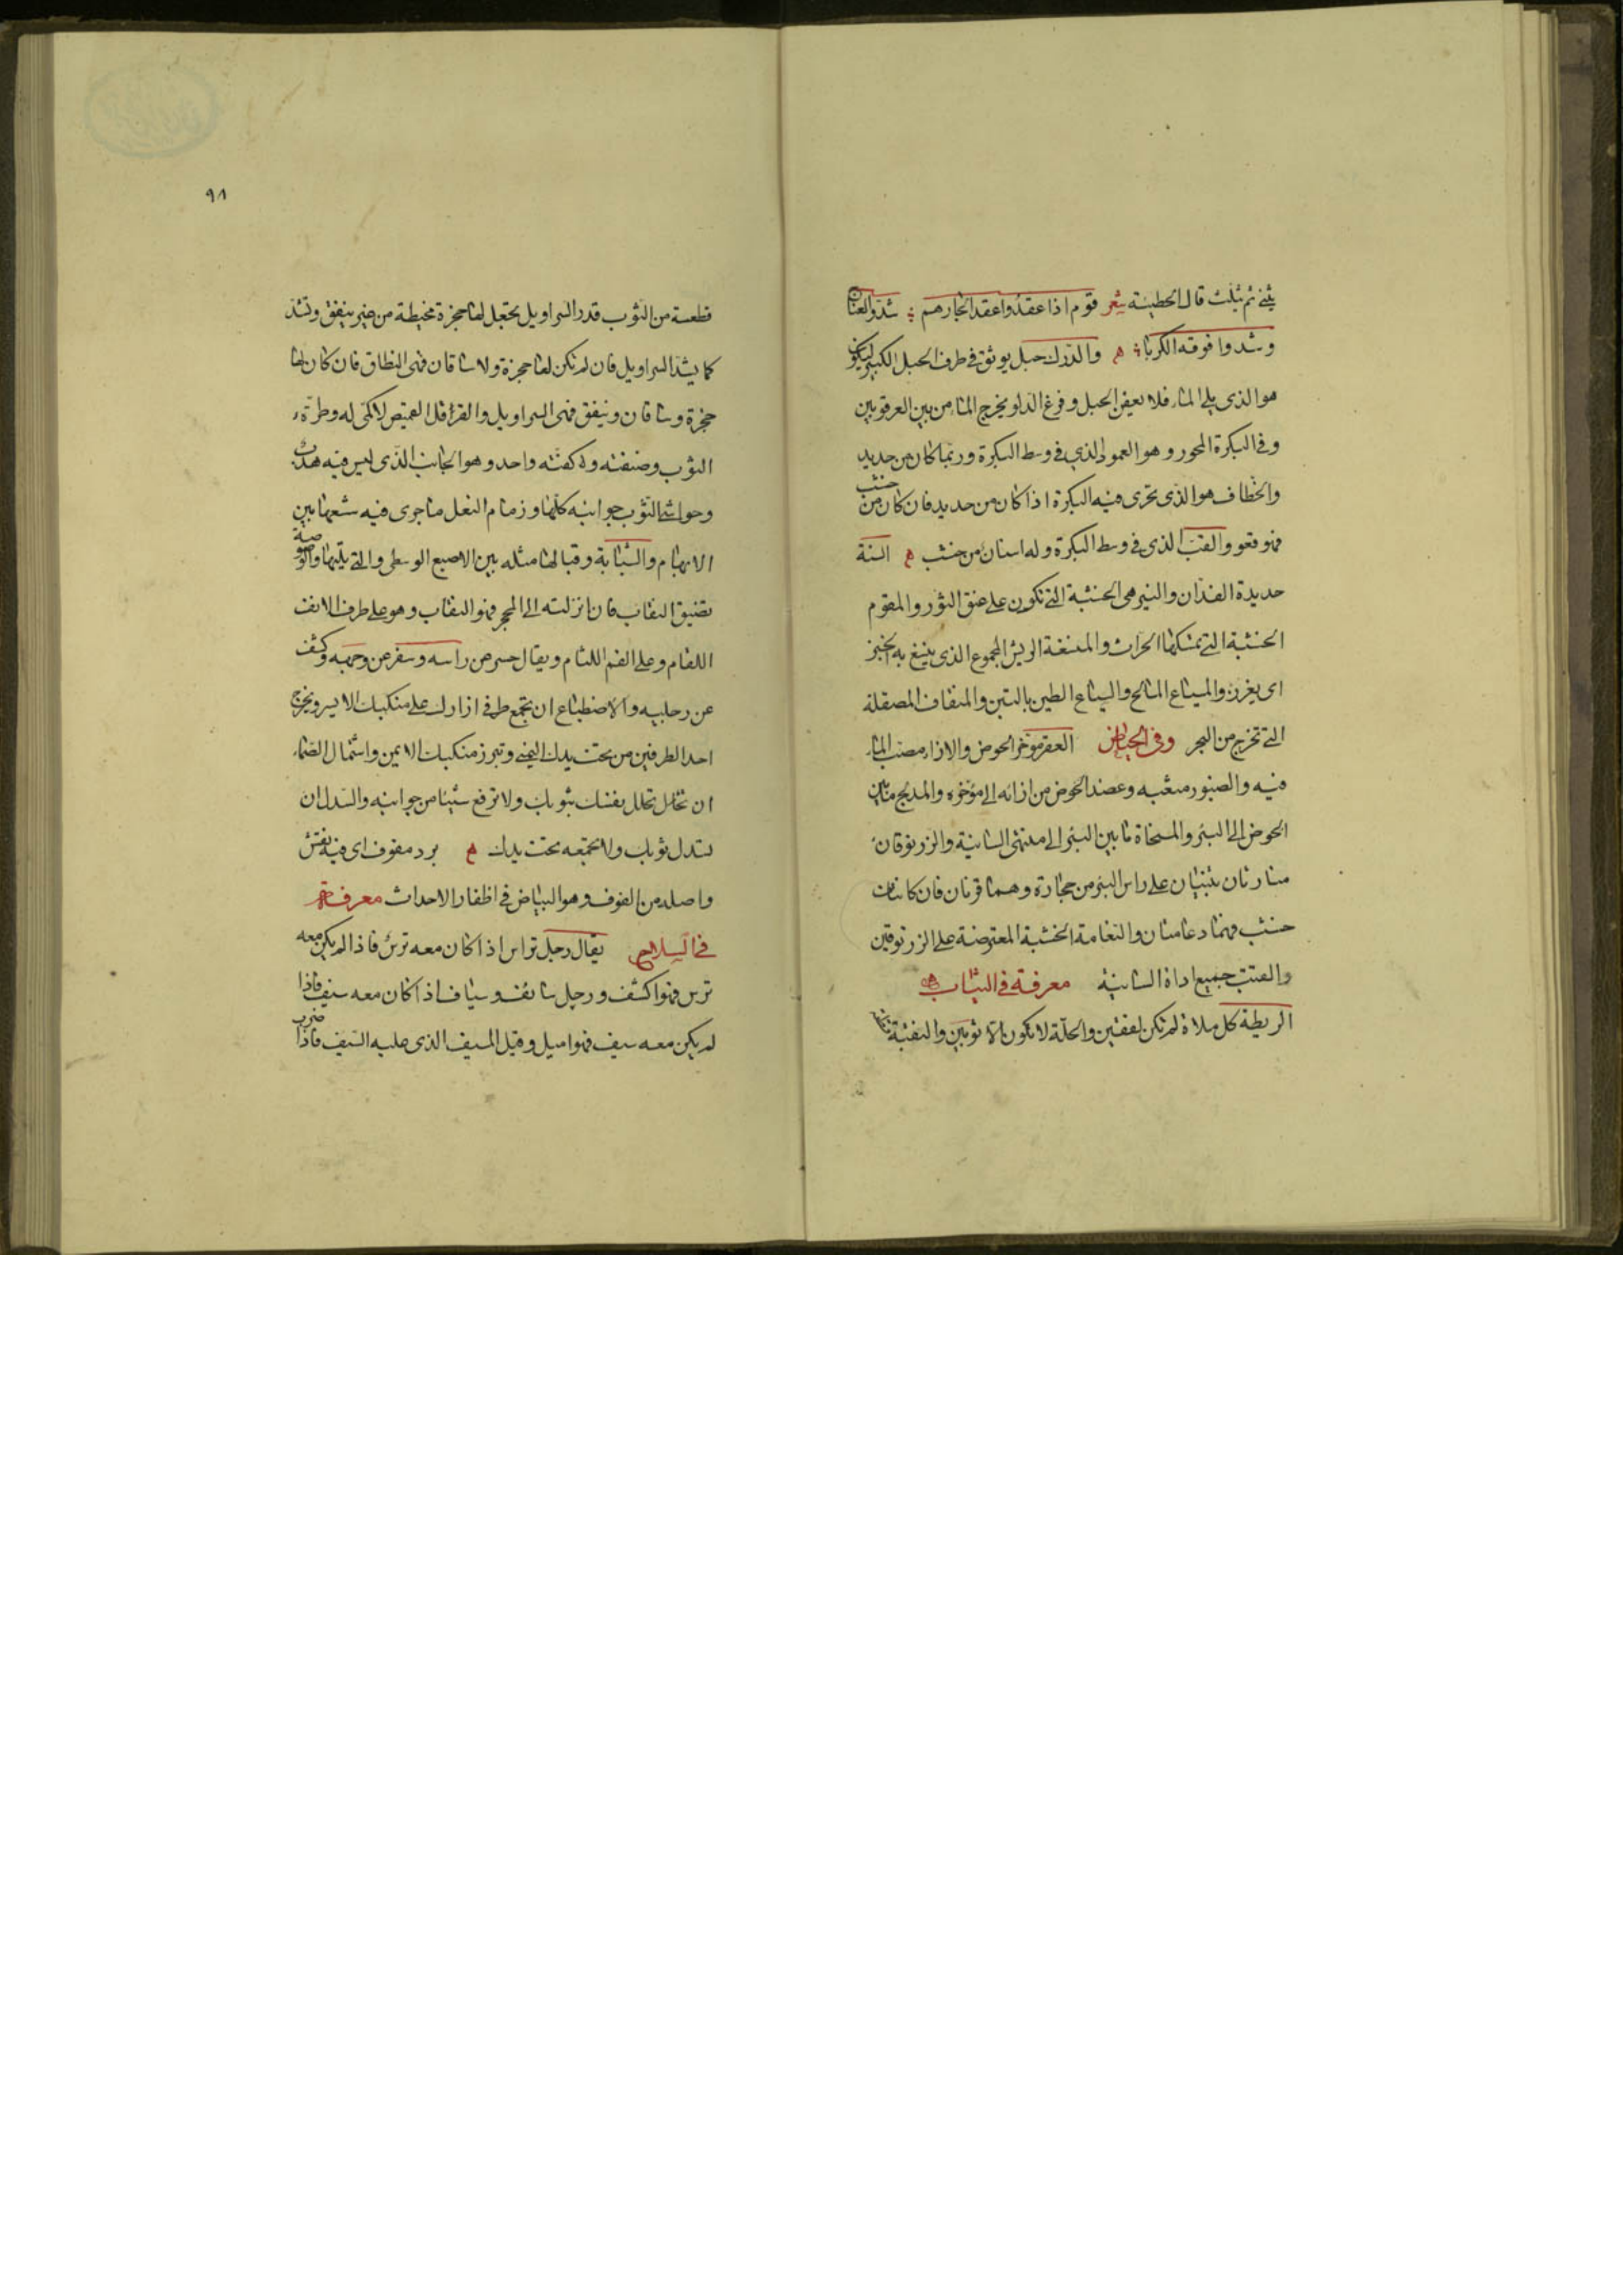 يثنى ثم يثلث قال الحطيئة شعر قوم اذا عقدوا عقدا لجارهم شدوا العناج
وشدوا فوقه الكربا ه والدرك حبل يوثق في طرف الحبل الكبير ليكون
هو الذى يلى الماء فلا يعفن الحبل وفرغ الدلو مخرج الماء من بين العرقوبين
وفى البكرة المحور وهو العمود الذى فى وسط البكرة وربما كان من حديد
والخطاف هو الذى تجرى فيه البكرة اذا كان من حديد فان كان من خشب
فهو قعو والقب الذى فى وسط البكرة وله اسنان من خشب ه السنة
حديدة الفدان والنير هى الخشبة التى تكون على عنق الثور والمقوم
الخشبة التى يمسكها الحراث والمنسغة الريش المجموع الذى ينسغ به الخبز
اى يغرز والمسياع المالج والسياع الطين بالتبن والمنقاف المصقلة
التى تخرج من البحر وفى الحياض العقر مؤخر الحوض والازاء مصب الماء
فيه والصنبور مثعبه وعضد الحوض من ازائه الى مؤخره والمدلج ما بين
الحوض الى البئر والمنحاة ما بين البئر الى منتهى السانية والزرنوقان
منارتان تبنيان على راس البئر من حجارة وهما قرنان فان كانتا من
خشب فهما دعامتان والنعامة الخشبة المعترضة على الزرنوقين
والقتب جميع اداة السانية معرفة فى الثياب
الريطة كل ملاة لم تكن لفقين والحلة لا تكون الا ثوبين والنقبة
٩٨
قطعة من الثوب قدر السراويل يجعل لها حجزة مخيطة من غير نيفق وتشد
كما يشد السراويل فان لم تكن لها حجزة ولا ساقان فهى النطاق فان كان لها
حجزة وساقان ونيفق فهى السراويل والقرقل القميص لا كمى له وطرة
الثوب وصنفته وكفته واحد وهو الجانب الذى ليس فيه هدب
وحواشى الثوب جوانبه كلها وزمام النعل ما جرى فيه شسعها بين
الابهام والسبابة وقبالها مثله بين الاصبع الوسطى والتى يليها والوصوصة
تضييق النقاب فان انزلته الى المحجر فهو النقاب وهو على طرف الانف
اللفام وعلى الفم اللثام ويقال حسر عن راسه وسفر عن وجهه وكشف
عن رجليه والاضطباع ان تجمع طرفى ازارك على منكبك الايسر وتخرج
احد الطرفين من تحت يدك اليمنى وتبرز منكبك الايمن واشتمال الصماء
ان تجلل نفسك بثوبك ولا ترفع شيئا من جوانبه والسدل ان
تسدل ثوبك ولا تجمعه تحت يدك ه برد مفوف اى فيه نقش
واصله من الفوف وهو البياض فى اظفار الاحداث معرفة
فى السلاح يقال رجل تراس اذا كان معه ترس فاذا لم يكن معه
ترس فهو اكشف ورجل سائف وسياف اذا كان معه سيف فاذا
لم يكن معه سيف فهو اميل وقيل المسيف الذى عليه السيف فاذا ضرب